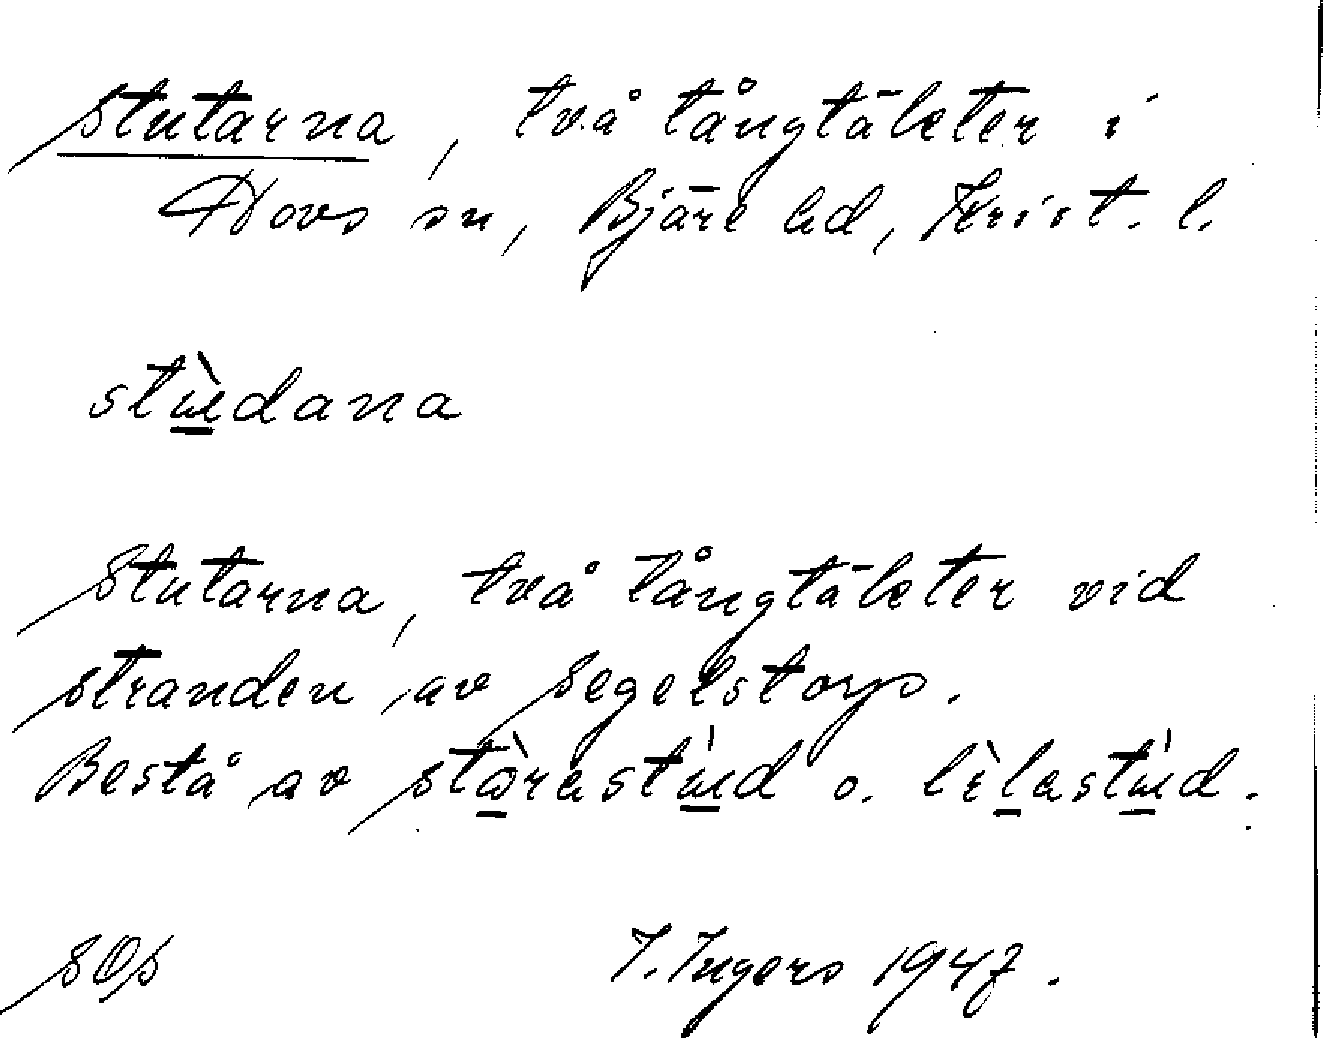 Stutarna, två tångtäkter i
Hovs sn, Bjäre hd, Krist. l.
stɯ̲̀dana
Stutarna, två tångtäkter vid
stranden av Segelstorp.
Bestå av stò̲rastɯ̲́d o. lìl̲astɯ̲́d.
SOS I. Ingers 1947.